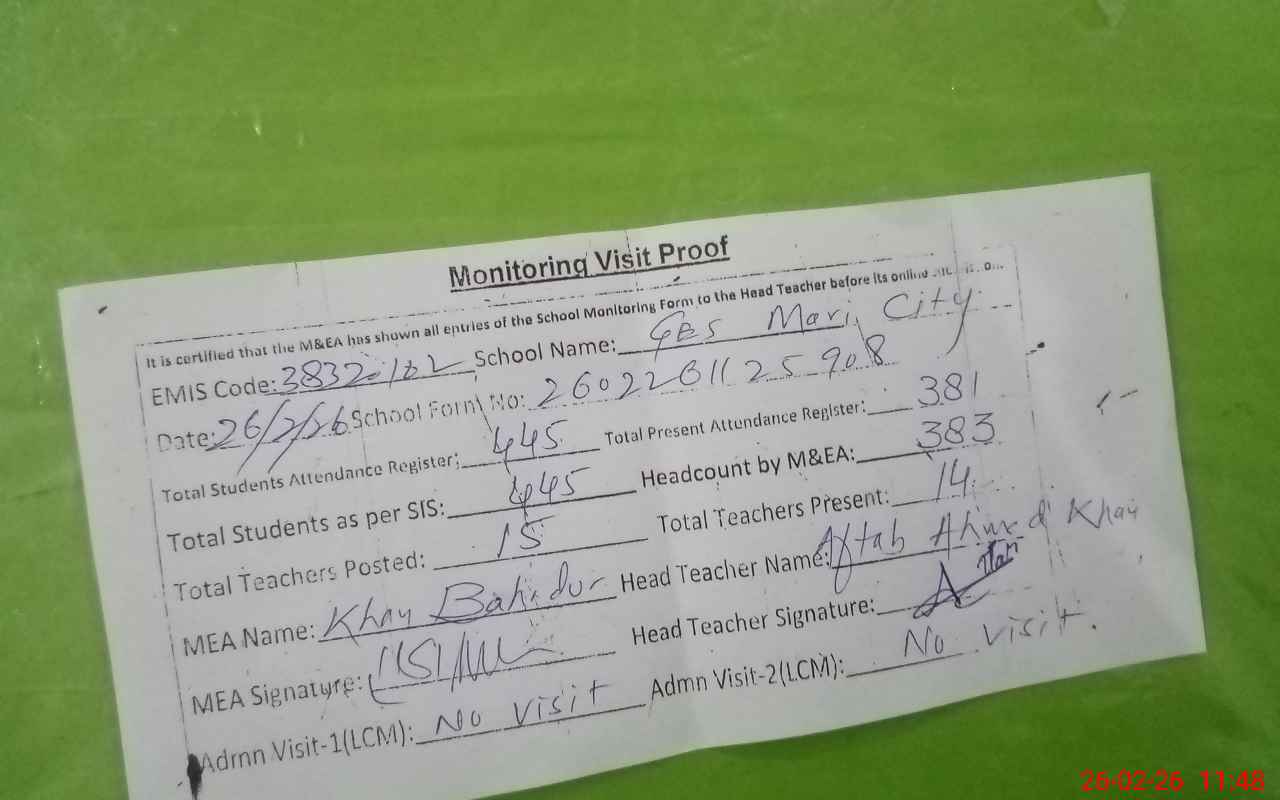 Monitoring Visit Proof
It is certified that the M&EA has shown all entries of the School Monitoring Form to the Head Teacher before its online
EMIS Code: 38320102 School Name: GES Mari City
Date: 26/2/26 School Form No: 26022611 25 908
Total Students Attendance Register: 445 Total Present Attendance Register: 381
Total Students as per SIS: 445 Headcount by M&EA: 383
Total Teachers Posted: 15 Total Teachers Present: 14
MEA Name: Khan Bahadur Head Teacher Name: Aftab Ahmed Khan
MEA Signature: Head Teacher Signature:
Admn Visit-1(LCM): No visit Admn Visit-2(LCM): No visit.
26-02-26 11:48